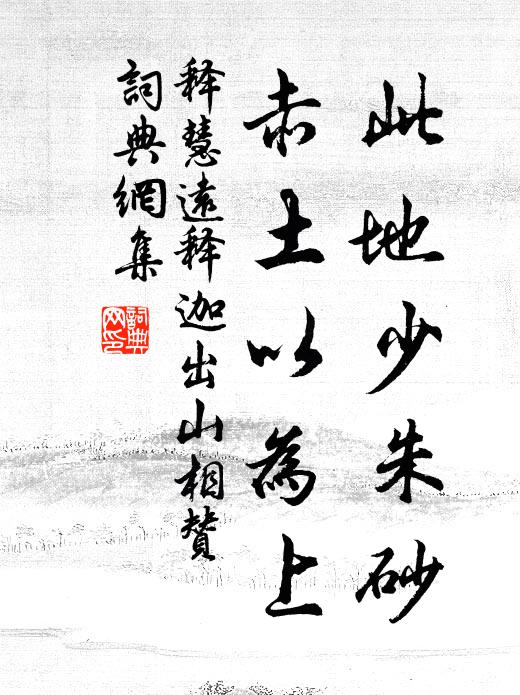 此地少朱砂
赤土以為上
释慧遠释迦出山相贊
詞典網集
詞典网印